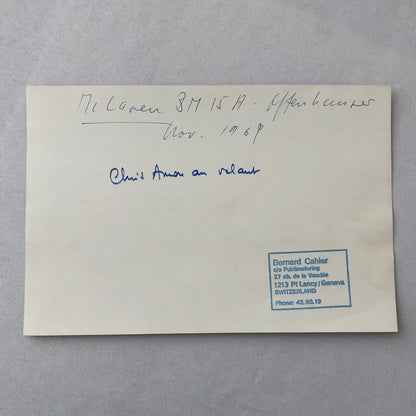 McLaren BM 15A - Offenhauser
Nov. 1969
Chris Amon au volant
Bernard Cahier
c/o Publimotoring
27 ch. de la Vendée
1213 Pt Lancy/Geneva
SWITZERLAND
Phone: 42.80.19